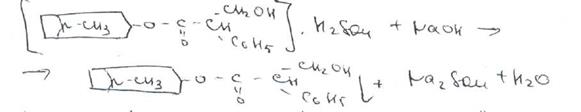 [N-CH3 -O-C-CH -CH2OH O C6H5] . H2SO4 + NaOH →
→ N-CH3 -O-C-CH -CH2OH O C6H5 ↓ + Na2SO4 + H2O